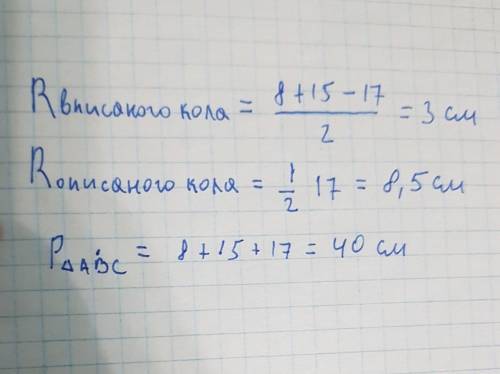 R вписаного кола = 8+15-17/2 = 3 см
R описаного кола = 1/2 17 = 8,5 см
P△ABC = 8+15+17 = 40 см